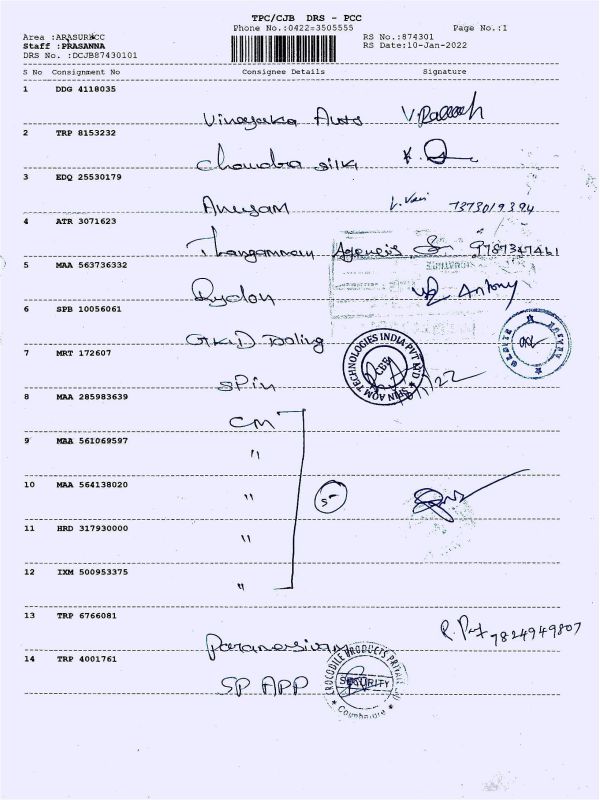 TPC/CJB DRS - PCC
Phone No.:0422=3505555
Page No.:1
Area :ARASUR PCC
RS No.:874301
Staff :PRASANNA
RS Date:10-Jan-2022
DRS No. :DCJB87430101
S No Consignment No Consignee Details Signature
1 DDG 4118035
Vinayaka Auto
2 TRP 8153232
Chandra silk
3 EDQ 25530179
Anugam 7373019394
4 ATR 3071623
Agencis 9787347461
5 MAA 563736332
Rydon Antony
6 SPB 10056061
Tooling
SPIN AQM TECHNOLOGIES INDIA PVT LTD
CBE
7 MRT 172607
SPin
8 MAA 285983639
CM
9 MAA 561069597
"
10 MAA 564138020
" 5
11 HRD 317930000
"
12 IXM 500953375
"
13 TRP 6766081
Paramasivam 7824949807
14 TRP 4001761
SP APP
CROCODILE PRODUCTS PRIVATE LTD
SECURITY
Coimbatore